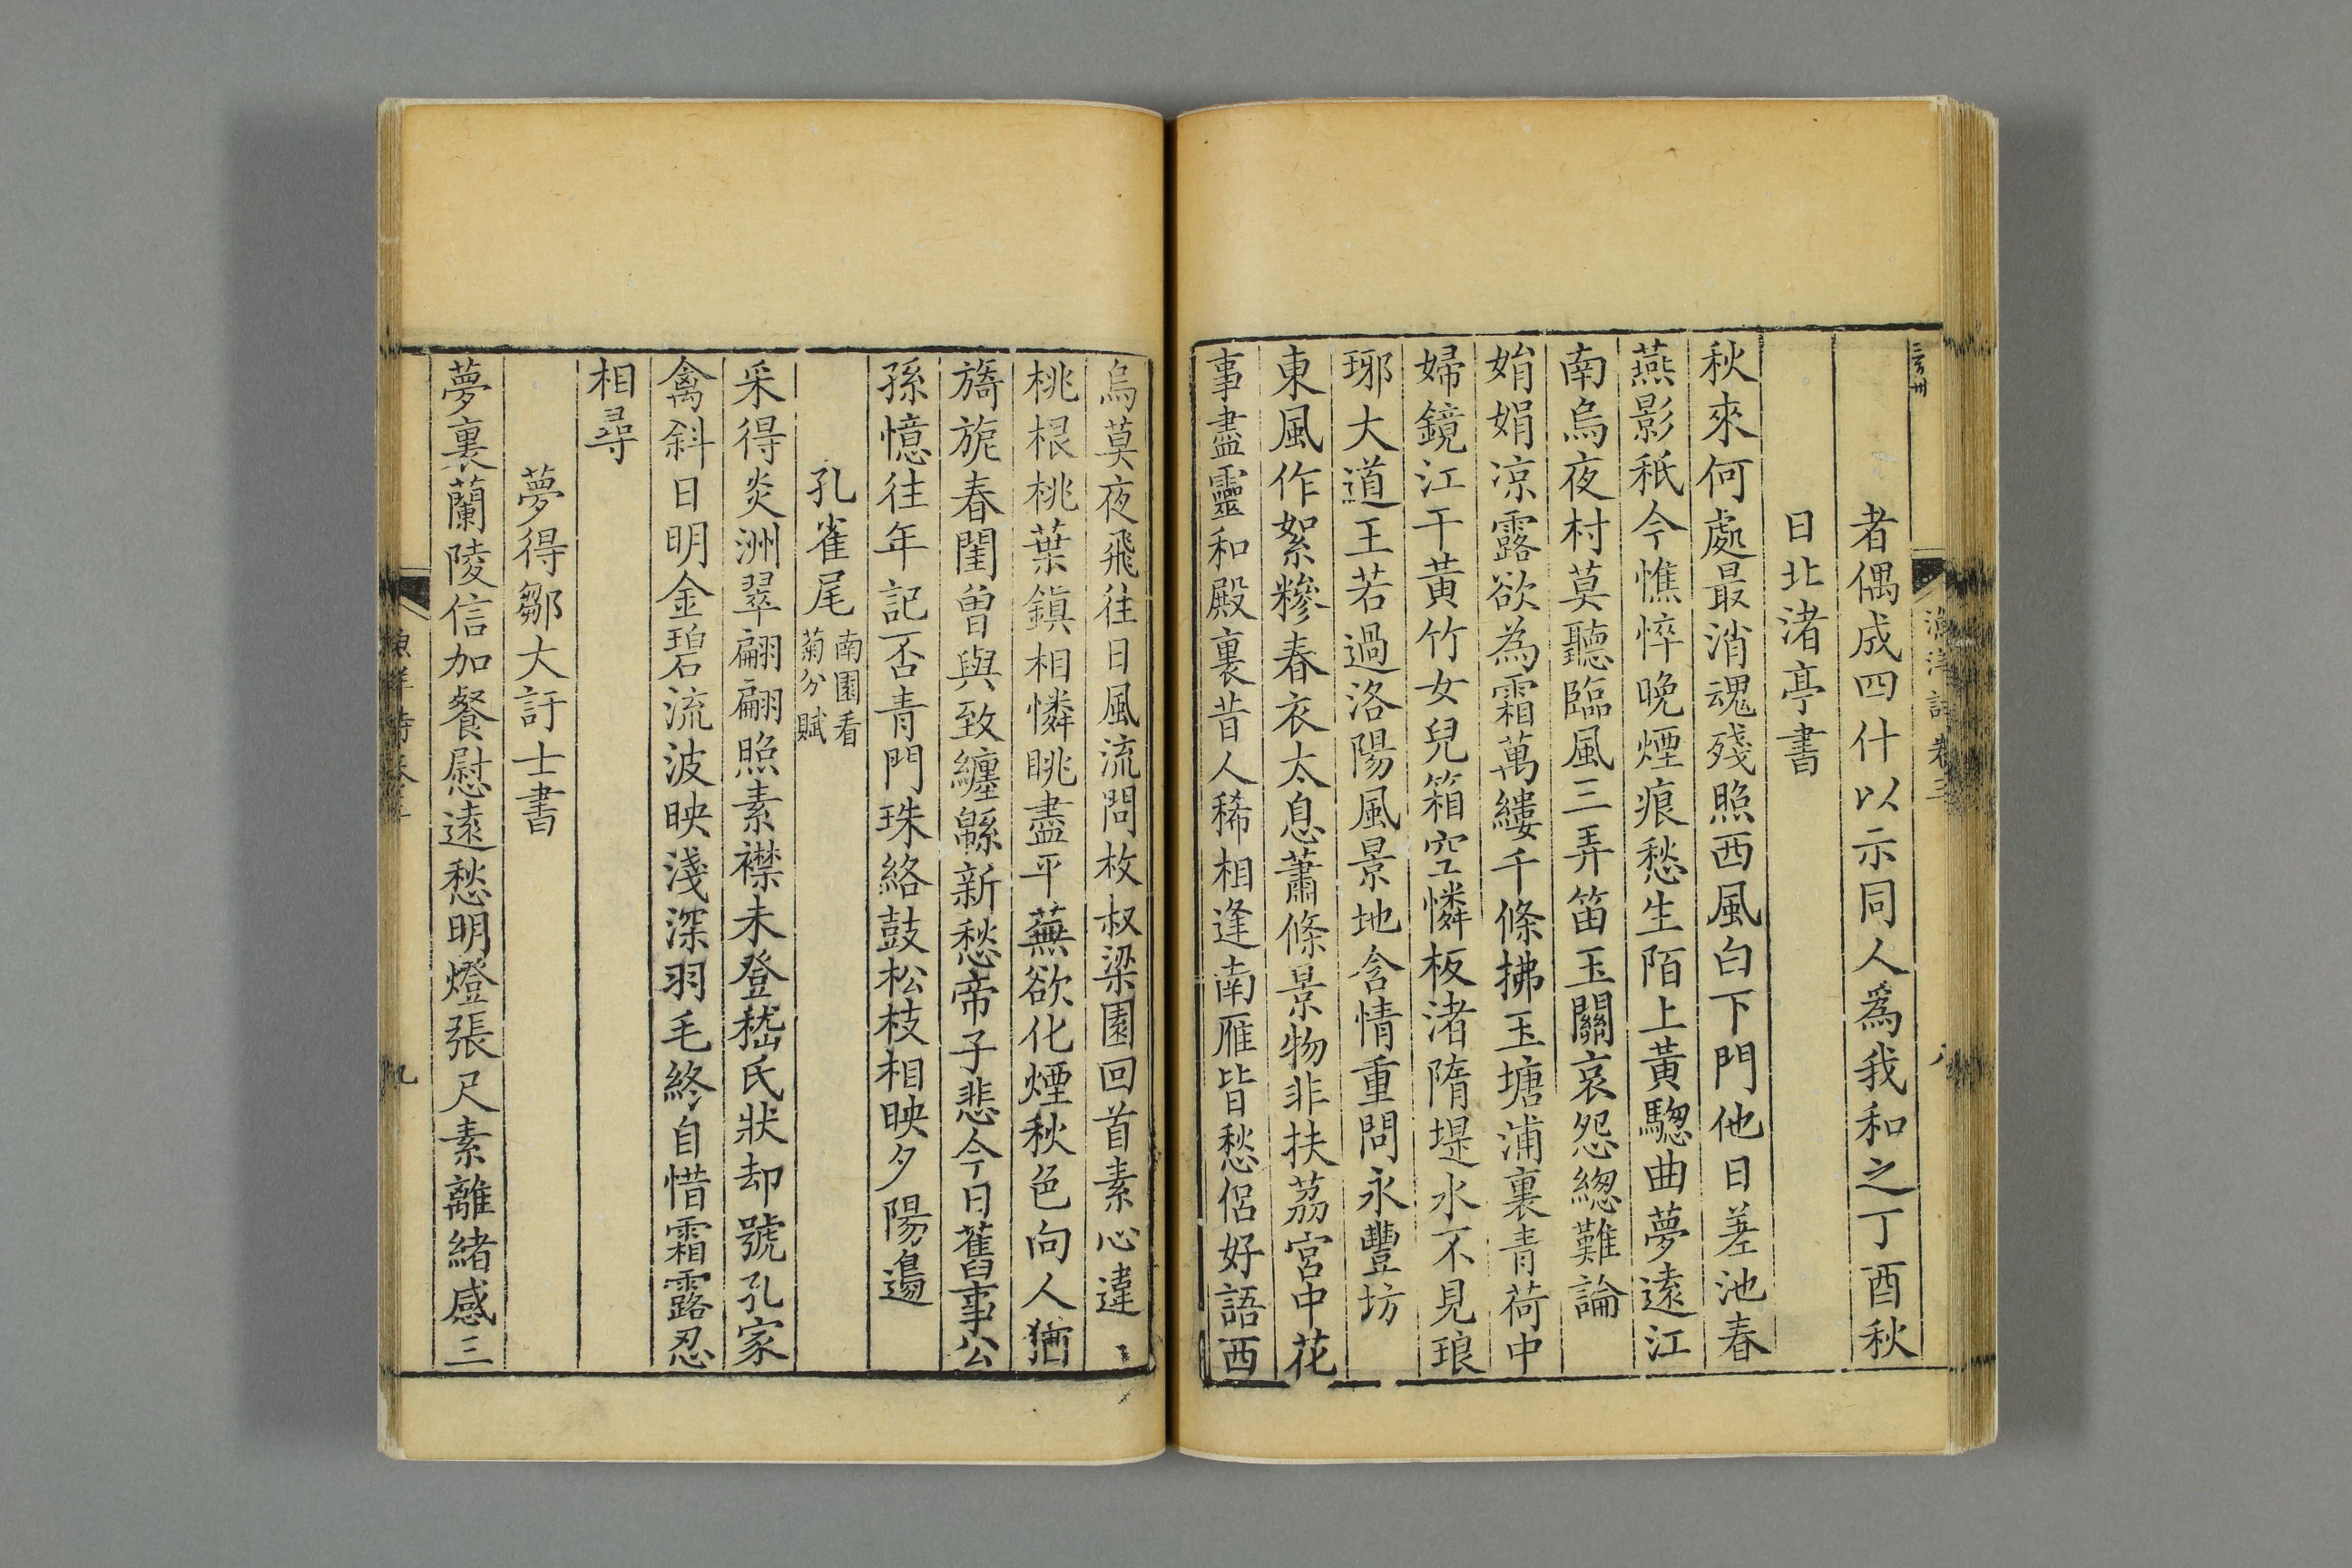 者偶成四什以示同人爲我和之丁酉秋
日北渚亭書
秋來何處最消魂殘照西風白下門他日差池春
燕影秪今憔悴晚煙痕愁生陌上黃驄曲夢遠江
南烏夜村莫聽臨風三弄笛玉關哀怨緫難論
娟娟凉露欲為霜萬縷千條拂玉塘浦裏青荷中
婦鏡江干黃竹女兒箱空憐板渚隋堤水不見琅
琊大道王若過洛陽風景地含情重問永豐坊
東風作絮糝春衣太息蕭條景物非扶荔宮中花
事盡靈和殿裏昔人稀相逢南雁皆愁侣好語西
烏莫夜飛往日風流問枚叔梁園回首素心違
桃根桃葉鎮相憐眺盡平蕪欲化煙秋色向人猶
旖旎春閨曾與致纏緜新愁帝子悲今日舊事公
孫憶往年記否青門珠絡鼓松枝相映夕陽邊
孔雀尾 南園看菊分賦
采得炎洲翠翩翩照素襟未登嵇氏狀却號孔家
禽斜日明金碧流波映淺深羽毛終自惜霜露忍
相尋
夢得鄒大訏士書
夢裏蘭陵信加餐慰遠愁明燈張尺素離緒感三
九